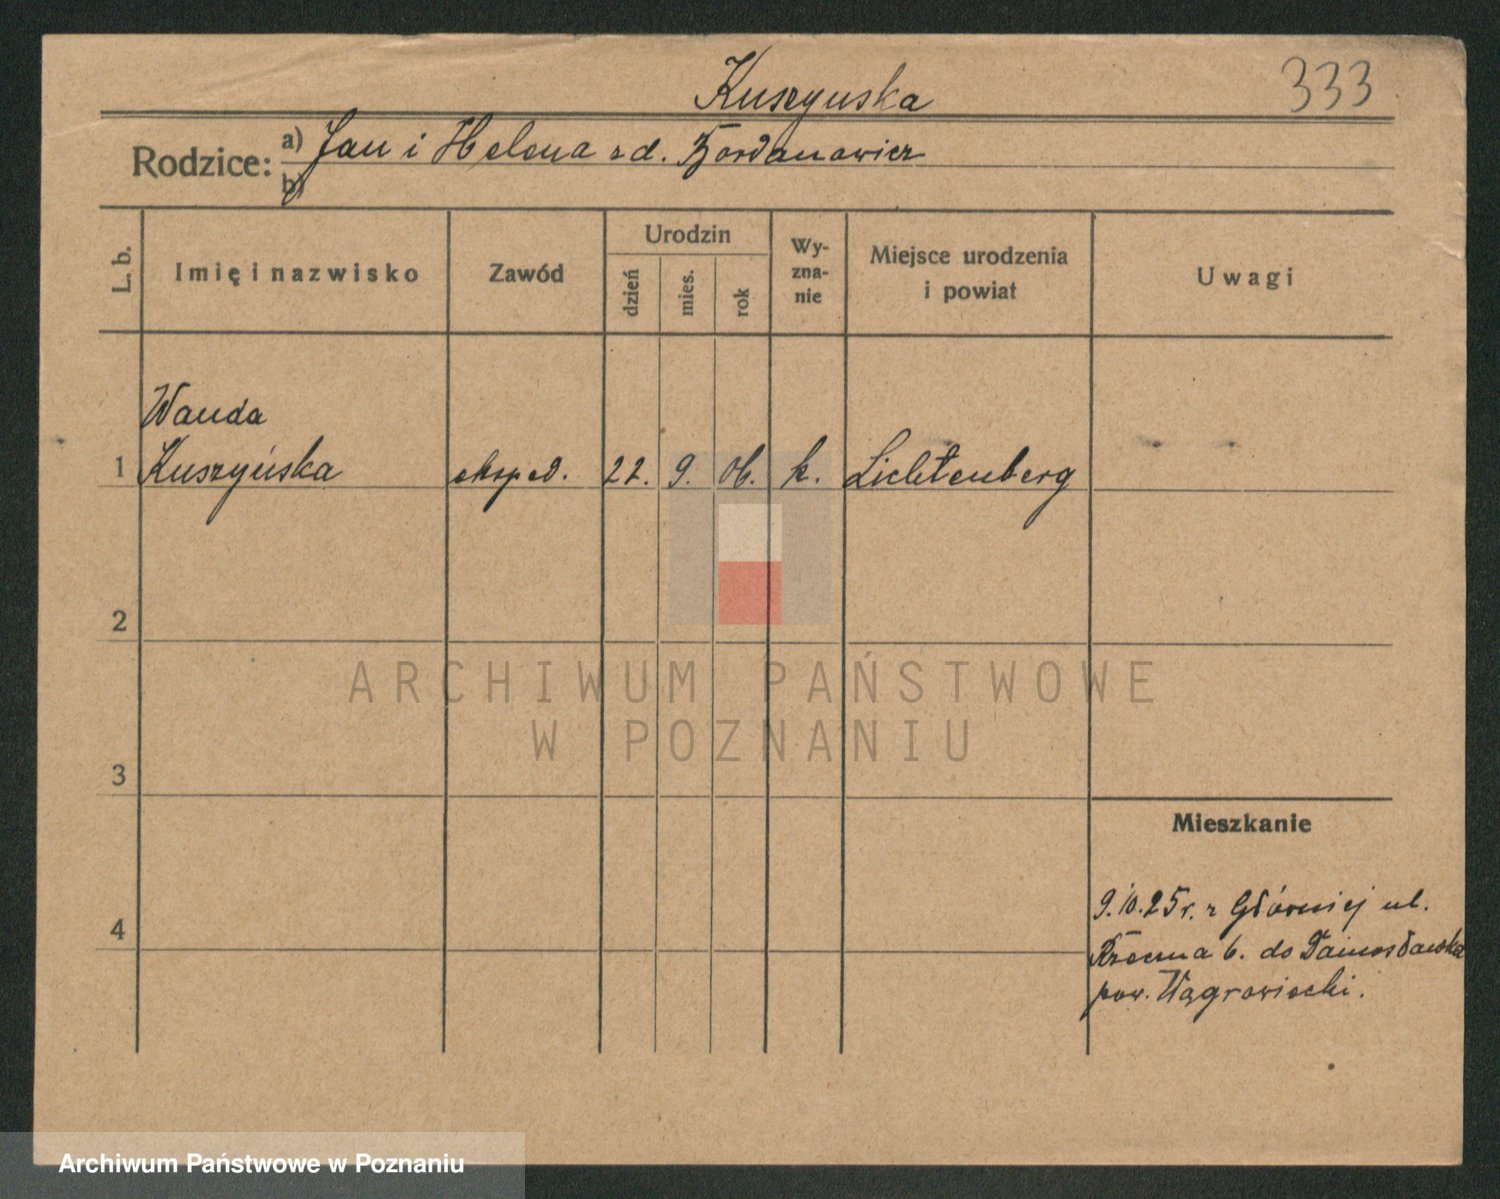 Kuszyńska
333
Rodzice: a) Jan i Helena zd. Bordanowicz
b)
L. b.
Imię i nazwisko
Zawód
Urodzin
dzień
mies.
rok
Wy-
zna-
nie
Miejsce urodzenia
i powiat
Uwagi
Wanda
1 Kuszyńska eksped. 22. 9. 06. k. Lichtenberg
2
ARCHIWUM PAŃSTWOWE
W POZNANIU
3
Mieszkanie
9.10.25 r. z Główniej ul.
4
6. do
pow. Wągrowiecki.
Archiwum Państwowe w Poznaniu